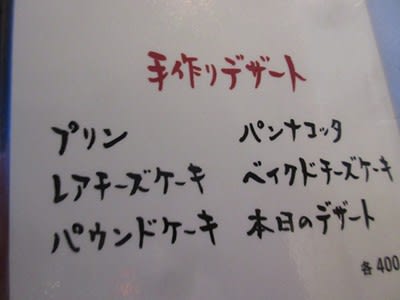 手作りデザート
プリン
パンナコッタ
レアチーズケーキ
ベイクドチーズケーキ
パウンドケーキ
本日のデザート
各400